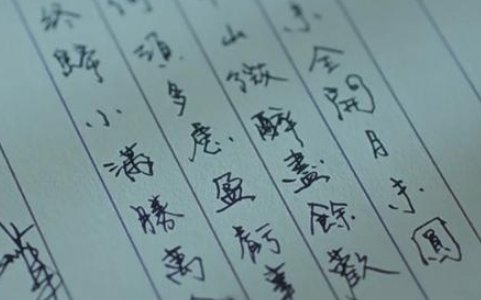 未全開月未圓
山微醉盡餘歡
須多慮盈虧事
終歸小滿勝萬